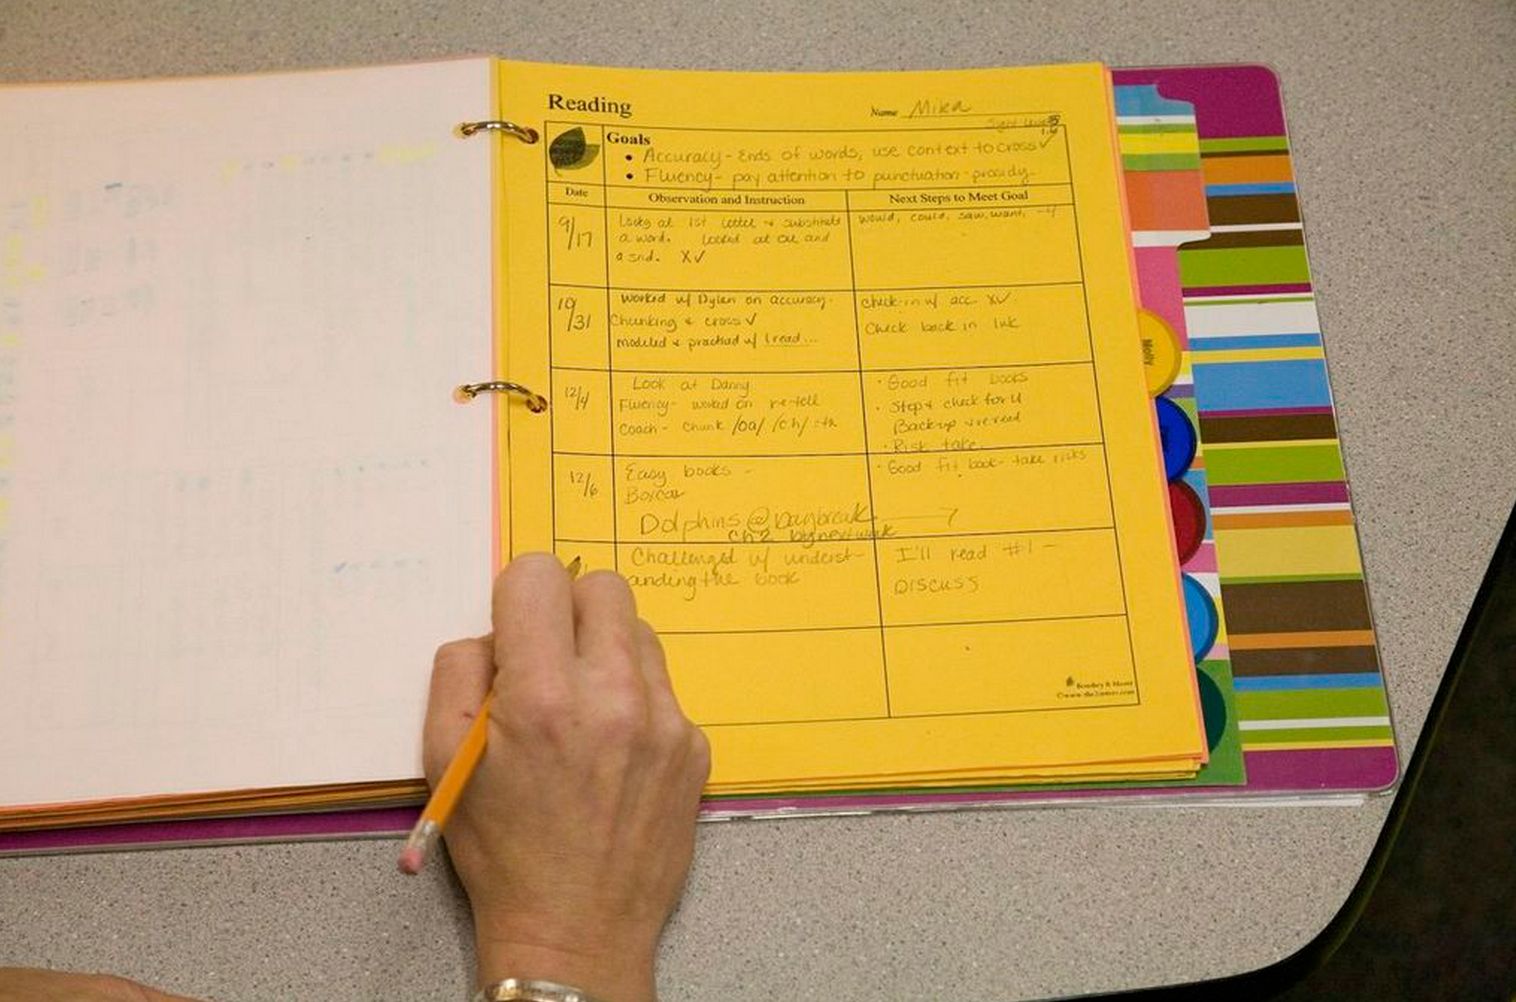 Reading
Name Mika
Goals
• Accuracy - Ends of words, use context to cross ✓
• Fluency - pay attention to punctuation - prosody
Date
Observation and Instruction
Next Steps to Meet Goal
9/17
Looks at 1st letter + substitute
a word. Looked at and
a snd. X✓
would, could, saw, want, - 4
10/31
Worked w/ Dylan on accuracy.
Chunking & cross ✓
modeled & practiced w/ I read...
check-in w/ acc. X✓
Check back in 1wk
12/4
Look at Danny
Fluency - worked on re-tell
Coach - chunk /oa/ /ch/
• Good fit books
• Stop & check for U
Back up & re read
• Risk take.
12/6
Easy books -
Boxcar
Dolphins @ Daybreak 7
ch 2 by next week
• Good fit book - take risks
Challenged w/ underst-
anding the book
I'll read #1 -
Discuss
Molly